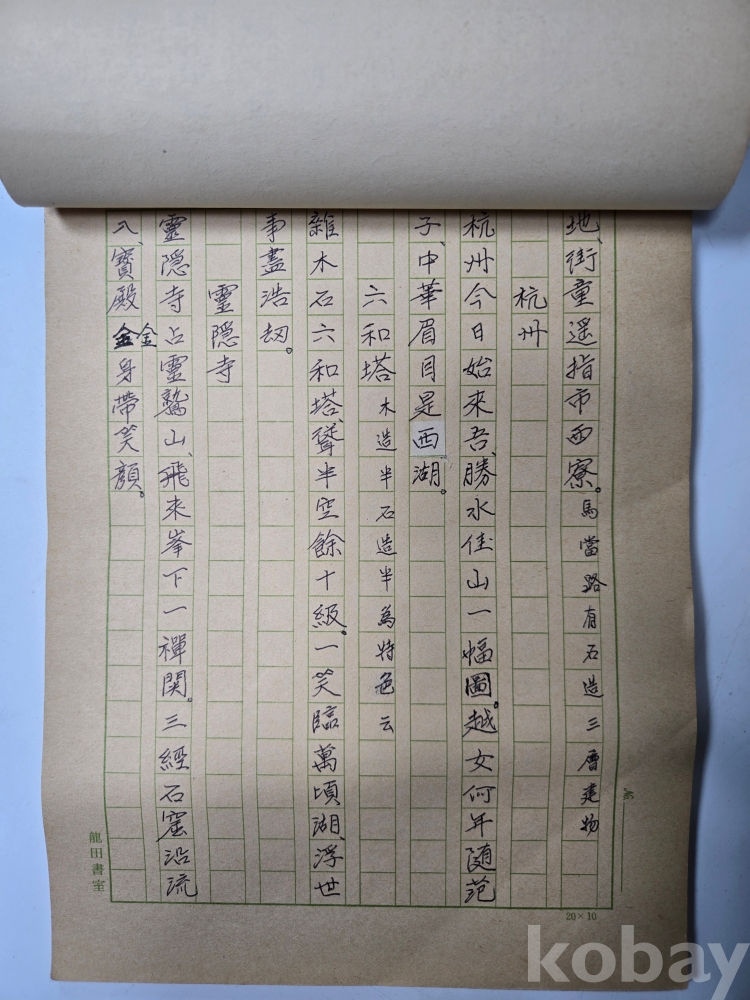 地、街童遥指市西寮。馬當路有石造三層建物
杭州
杭州今日始来吾、勝水佳山一幅圖。越女何年随范
子、中華眉目是西湖。
六和塔 木造半石造半為特色云
雜木石六和塔、聳半空餘十級。一笑臨萬頃湖、浮世
事盡浩劫。
靈隠寺
靈隠寺占靈鷲山、飛来峯下一禪関。三經石窟沿流
入、寳殿金金身帶笑顔。
龍田書室
20×10
kobay